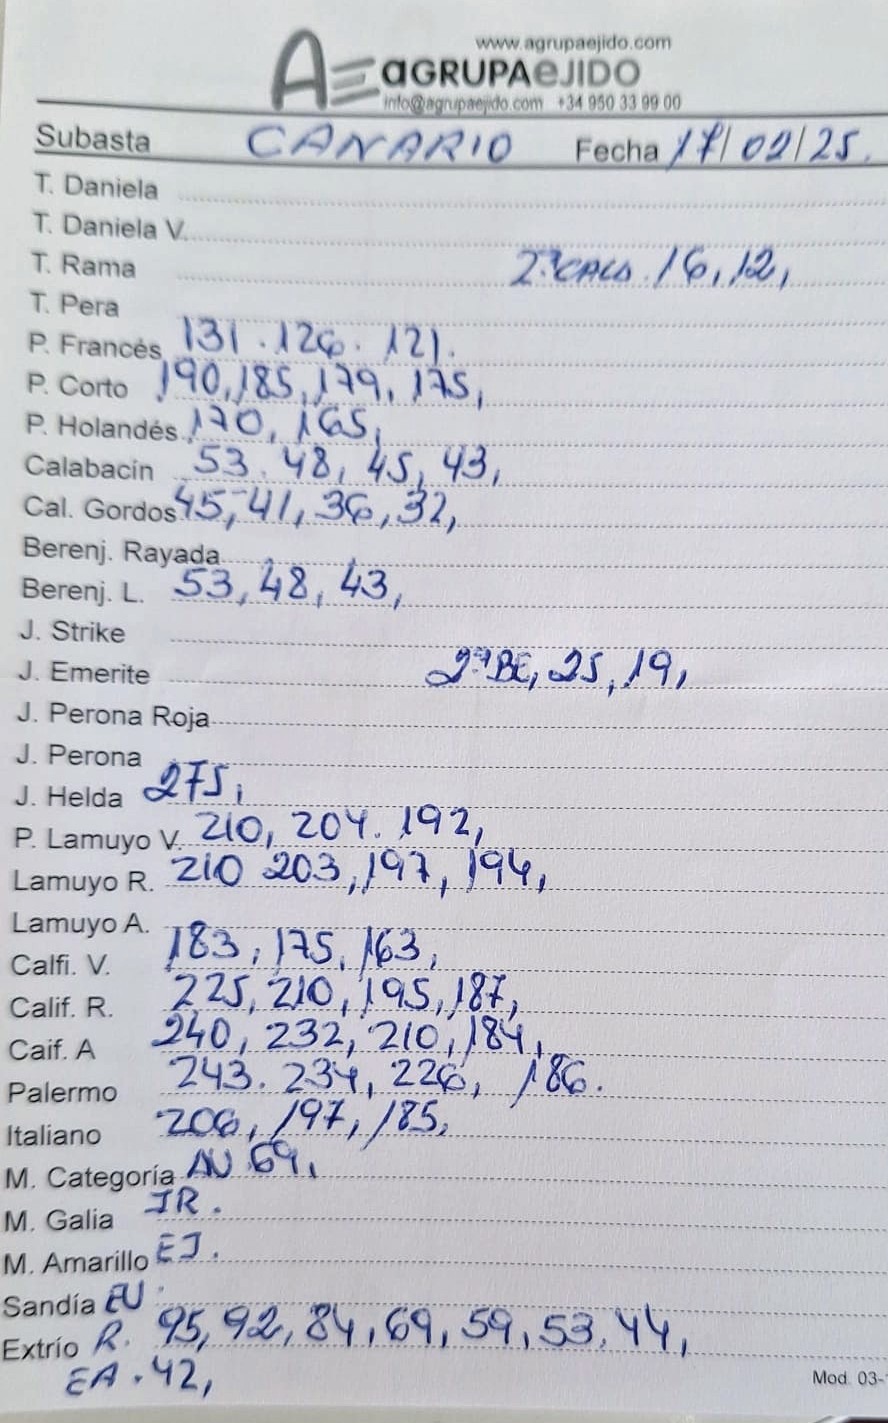 www.agrupaejido.com
AGRUPAEJIDO
info@agrupaejido.com +34 950 33 99 00
Subasta CANARIO Fecha 17/02/25.
T. Daniela
T. Daniela V.
T. Rama 2ªCALA. 16, 12,
T. Pera
P. Francés 131. 126. 121.
P. Corto 190, 185, 179, 175,
P. Holandés 170, 165,
Calabacín 53. 48, 45, 43,
Cal. Gordos 45, 41, 36, 32,
Berenj. Rayada
Berenj. L. 53, 48, 43,
J. Strike
J. Emerite 2ªBE, 25, 19,
J. Perona Roja
J. Perona
J. Helda 275,
P. Lamuyo V. 210, 204. 192,
Lamuyo R. 210 203, 197, 194,
Lamuyo A.
Calfi. V. 183, 175, 163,
Calif. R. 225, 210, 195, 187,
Caif. A 240, 232, 210, 184,
Palermo 243. 234, 226, 186.
Italiano 206, 197, 185,
M. Categoría AU 69,
M. Galia IR.
M. Amarillo EJ.
Sandía EU.
Extrío R. 95, 92, 84, 69, 59, 53, 44,
EA. 42,
Mod. 03-